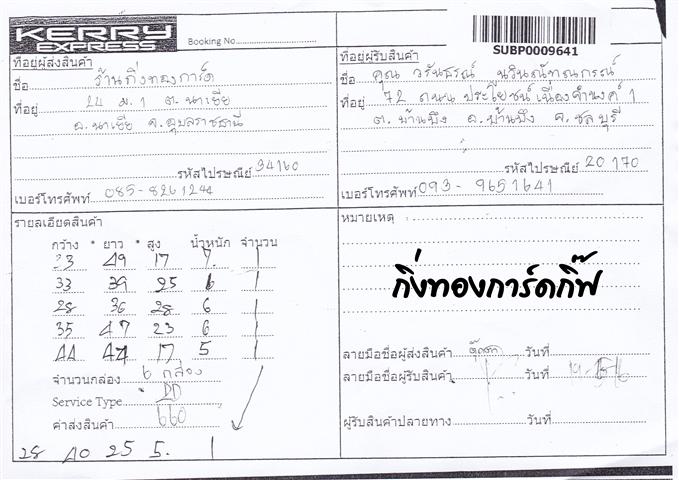 KERRY
EXPRESS
Booking No.
SUBP0009641
ที่อยู่ผู้ส่งสินค้า
ชื่อ ร้านกิ่งทองการ์ด
ที่อยู่ 24 ม.1 ต.นาเยีย
อ.นาเยีย จ.อุบลราชธานี
รหัสไปรษณีย์ 34160
เบอร์โทรศัพท์ 085-8261244
ที่อยู่ผู้รับสินค้า
ชื่อ คุณ
ที่อยู่ 72 ถนน ประโยชน์เนื่องจำนงค์ 1
ต.บ้านบึง อ.บ้านบึง จ.ชลบุรี
รหัสไปรษณีย์ 20170
เบอร์โทรศัพท์ 093-9651641
รายละเอียดสินค้า
กว้าง * ยาว * สูง น้ำหนัก จำนวน
33 49 17 7 1
33 39 25 6 1
28 36 28 6 1
35 47 23 6 1
44 44 17 5 1
จำนวนกล่อง 6 กล่อง
Service Type DD
ค่าส่งสินค้า 660
28 40 25 5. 1
หมายเหตุ
กิ่งทองการ์ดกิ๊ฟ
ลายมือชื่อผู้ส่งสินค้า วันที่
ลายมือชื่อผู้รับสินค้า วันที่
ผู้รับสินค้าปลายทาง วันที่